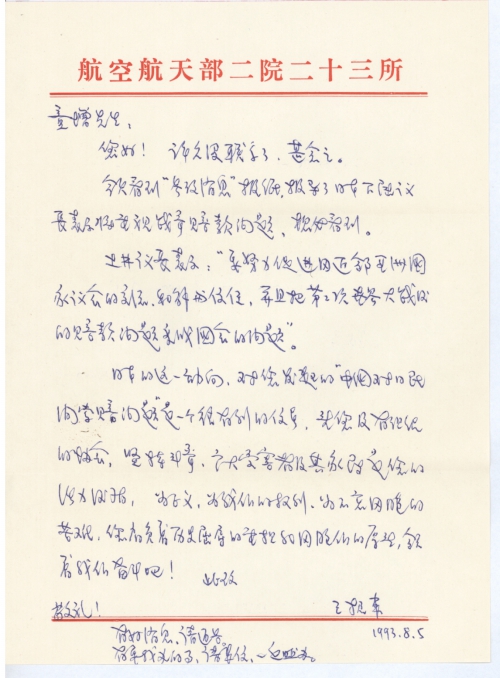 航空航天部二院二十三所
童增先生：
您好！许久没联系了，甚念之。
今天看到“参考消息”报纸，报导了日本下院议
长表示将重视战争赔款问题，很好看到。
土井议长表示：“要努力促进同近邻亚洲国
家议会的交流，和解与信任，并且把第二次世界大战后
的赔款问题变成国会的问题”。
日本的这一动向，对您发起的“中国对日民
间索赔问题”是一个很有利的信号，望您及有组织
的协会，坚持斗争，广大受害者及其家属是您的
后盾，为正义，为我们的权利，为不忘同胞的
苦难，您肩负着历史赋予的重担和同胞们的厚望，领
着我们奋斗吧！
此致
敬礼！
1993.8.5
有好消息，请通告。
有要我办的事，请来信，一定照办。